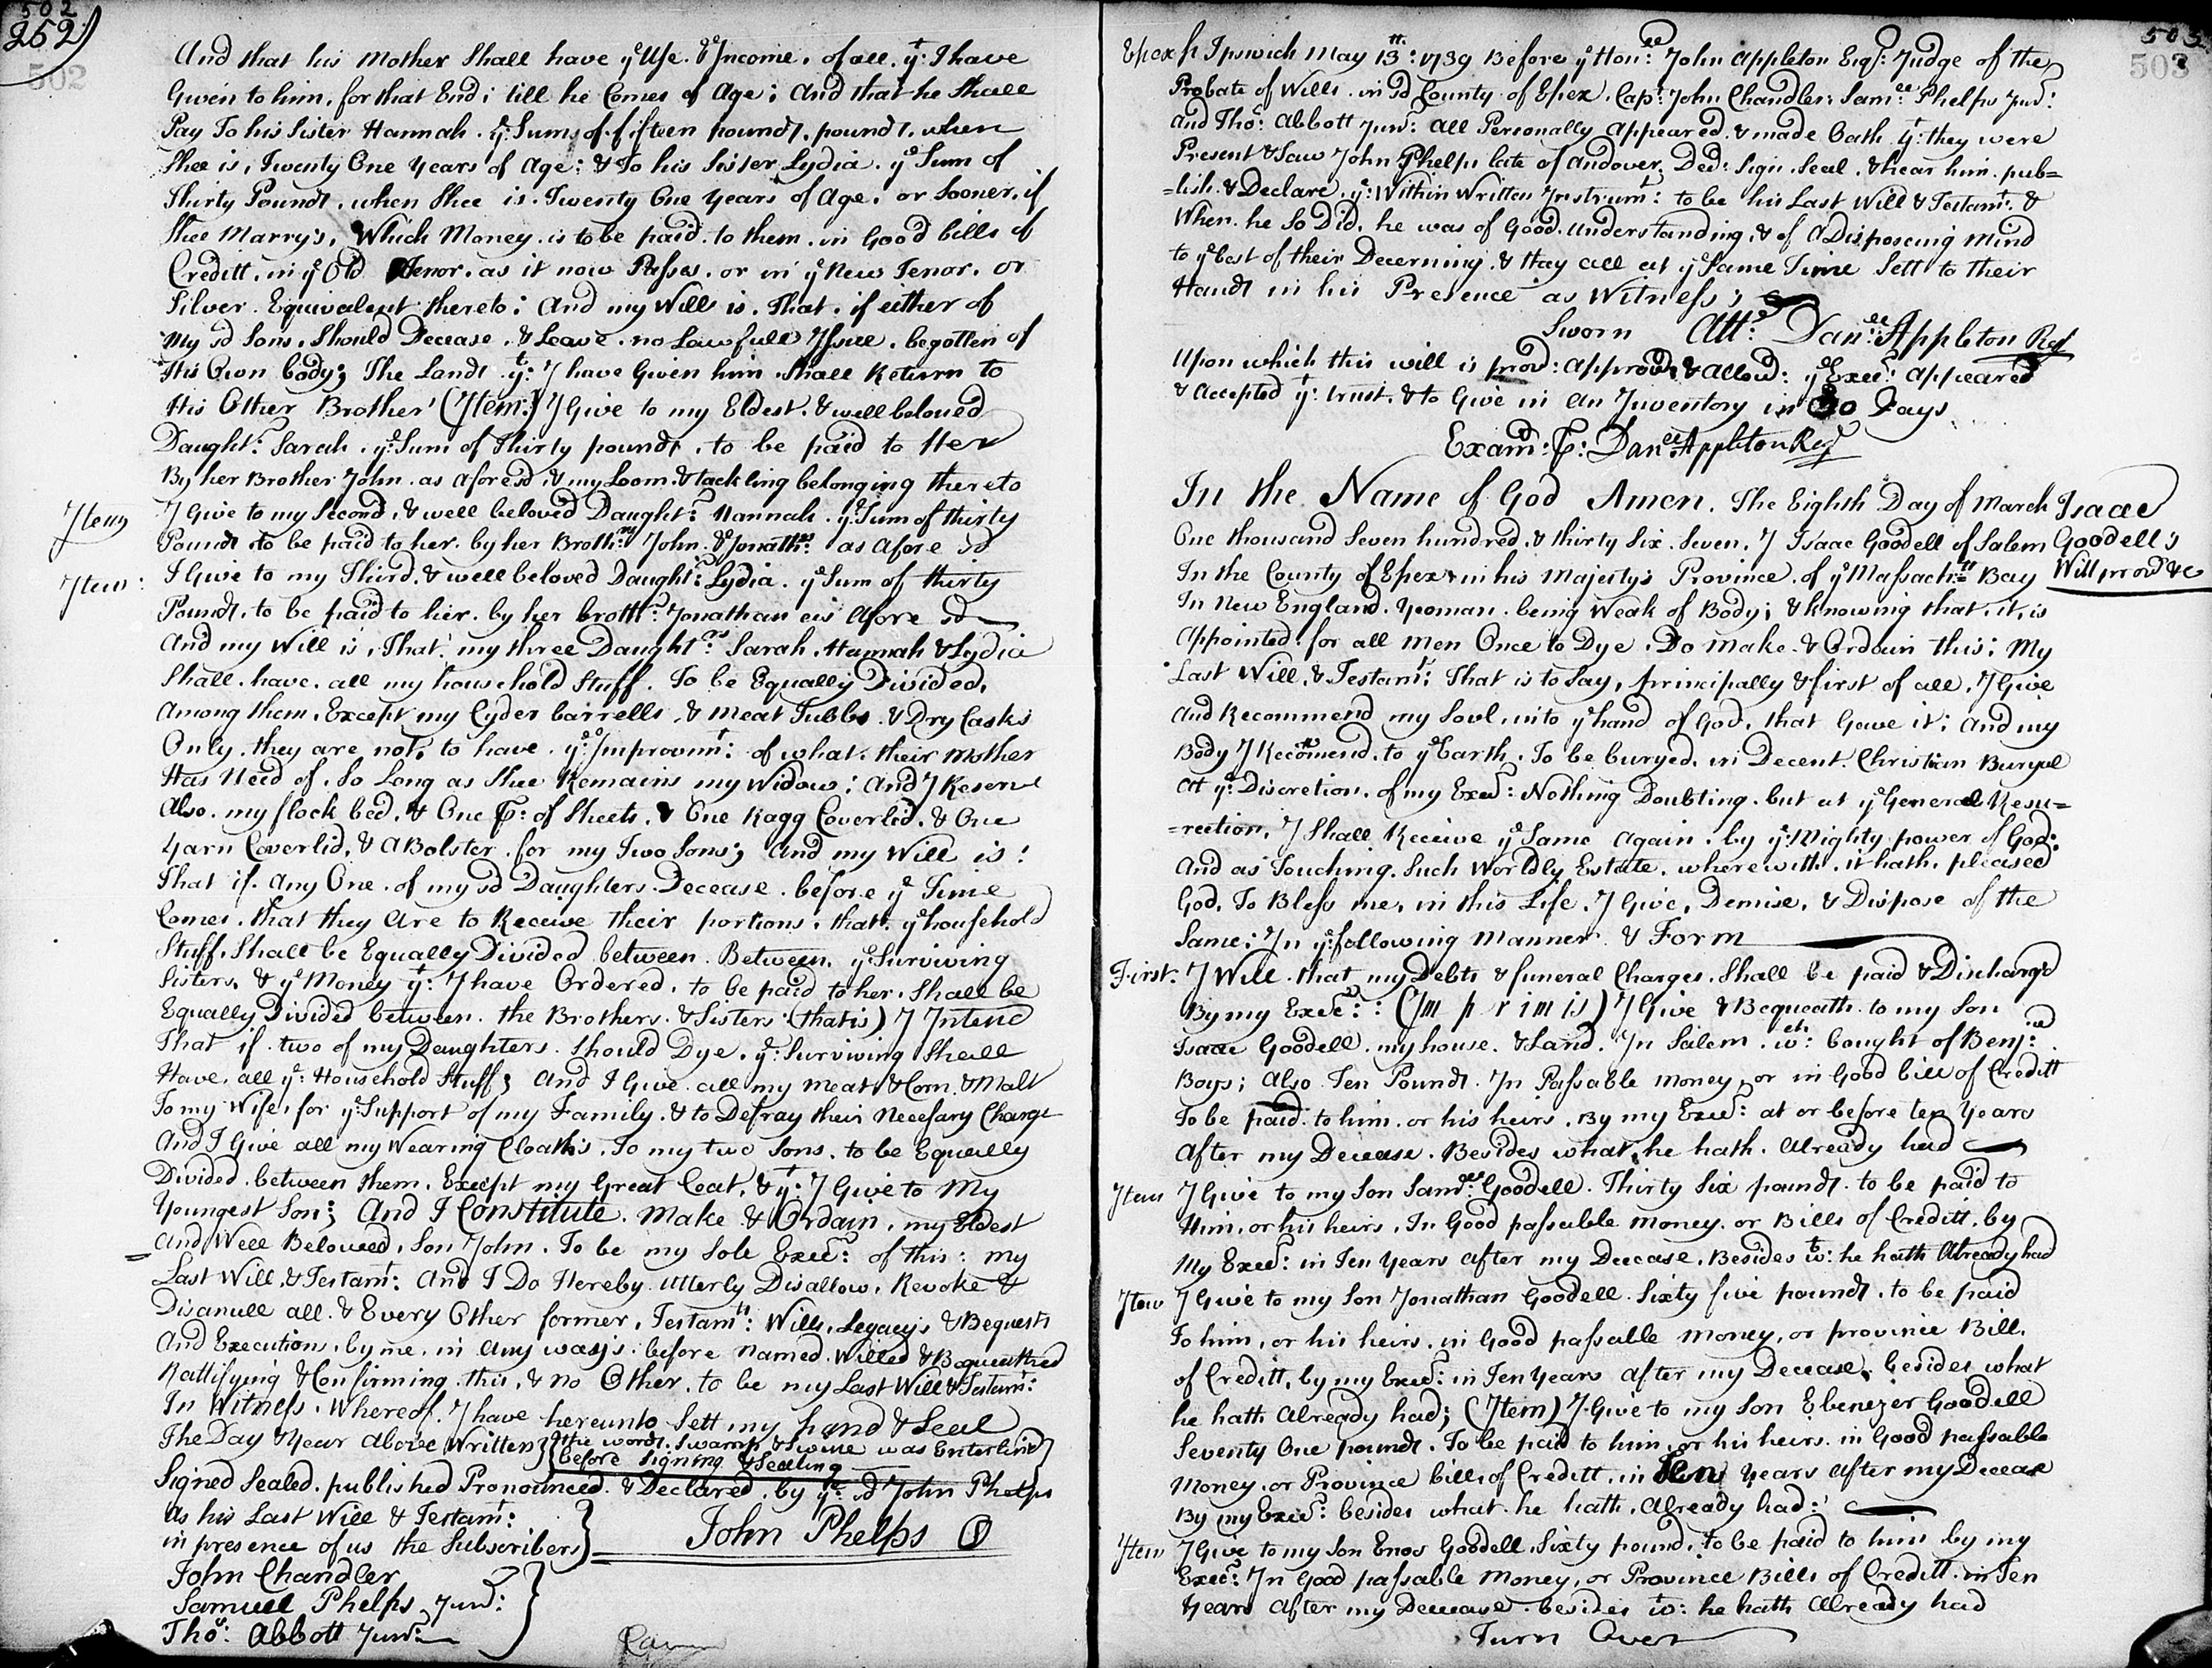 502
252)
502
And that his Mother Shall have ye Use & Income, of all, yt: I have
Given to him, for that End; till he Comes of Age; And that he Shall
Pay To his Sister Hannah. ye Sums of fifteen pounds, pounds, when
Shee is, Twenty One Years of Age: & To his Sister Lydia. ye Sum of
Thirty Pounds, when Shee is. Twenty One years of Age, or Sooner, if
Shee Marry's, Which Money is to be paid to them in Good bills of
Creditt, in ye Old Tenor, as it now Passes, or in ye New Tenor, or
Silver Equivalent thereto; And my Will is. That, if either of
My sd Sons, Should Decease, & Leave no Lawfull Issue, begotten of
His Own body; The Lands yt: I have Given him Shall Return to
His Other Brother (Item:) I Give to my Eldest. & well beloved
Daught: Sarah. ye Sum of Thirty pounds, to be paid to Her
By her Brother John as aforesd, & my Loom & tackling belonging thereto
Item I Give to my Second, & well beloved Daught: Hannah. ye Sum of thirty
Pounds to be paid to her. by her Brothrs John. & Jonathn: as afore sd
Item: I Give to my Third. & well beloved Daught: Lydia. ye Sum of thirty
Pounds, to be paid to her. by her brothr: Jonathan as Afore sd
And my Will is, That my three Daughtrs: Sarah, Hannah & Lydia
Shall have all my household Stuff. To be Equally Divided,
Among them, Except my Cyder barrells, & Meat Tubbs & Dry Casks
Only they are not, to have ye Improvmt: of what their Mother
Has Need of, So Long as Shee Remains my Widow; And I Reserve
Also my flock bed, & One Pr: of Sheets, & One Ragg Coverlid, & One
Yarn Coverlid, & A Bolster for my Two Sons; And my Will is:
That if Any One of my sd Daughters Decease before ye Time
Comes, that they Are to Receive their portions, that ye household
Stuff, Shall be Equally Divided between Between, ye Surviving
Sisters, & ye Money yt: I have Ordered, to be paid to her, Shall be
Equally Divided between the Brothers & Sisters (that is) I Intend
That if two of my Daughters Should Dye, ye: Surviving Shall
Have, all ye: Household Stuff; And I Give all my Meat & Corn & Malt
To my Wife, for ye Support of my Family. & to Defray their Necesary Charge
And I Give all my Wearing Cloaths, To my two Sons. to be Equally
Divided between them, Except my Great Coat, & yt: I Give to My
Youngest Son; And I Constitute. Make & Ordain, my Eldest
And Well Beloved, Son John. To be my Sole Execr: of this: my
Last Will, & Testamt: And I Do Hereby Utterly Disallow, Revoke &
Disanull all & Every Other former, Testamts: Wills, Legacy's & Bequests
And Executions, by me, in Any ways before Named, Willed & Bequeathed
Rattifying & Confirming this, & no Other, to be my Last Will & Testamt:
In Witness Whereof I have hereunto Sett my hand & Seal
The Day & Year above Written } { the words Swamp & Swine was Enterlind
before Signing & Sealing }
Signed Sealed published Pronounced & Declared by ye sd John Phelps
As his Last Will & Testamt:
in presence of us the Subscribers } John Phelps
John Chandler
Samuel Phelps Junr:
Tho: Abbott Junr:
505
503
Essex ss Ipswich May 13th: 1739 Before ye Honble: John Appleton Esqr: Judge of the
Probate of Wills in sd County of Essex. Capt: John Chandler, Samll: Phelps Junr:
And Tho: Abbott Junr: All Personally Appeared. & made Oath yt: they were
Present & Saw John Phelps late of Andover Decd: Sign, Seal, & hear him pub=
=lish & Declare ye: Within Written Instrumt: to be his Last Will & Testamt: &
When he So Did, he was of Good Understanding, & of A Disposeing Mind
to ye best of their Decerning. & they all at ye Same Time Sett to their
Hands in his Presence as Witness;
Sworn Attr: Danll: Appleton Regr
Upon which this will is provd: Approvd, & Allowd: ye Execr: Appeared
& Accepted yt: trust, & to Give in An Inventory in 30 Days
Examd: Pr: Danll: Appleton Regr
In the Name of God Amen. The Eighth Day of March
Isaac
One thousand Seven hundred & thirty Six Seven. I Isaac Goodell of Salem
Goodell's
In the County of Essex & in his Majesty's Province of ye Massachtts Bay
Will provd &c
In New England, Yeoman being Weak of Body; & knowing that it, is
Appointed for all Men Once to Dye, Do Make & Ordain this; My
Last Will, & Testamt: That is to Say, principally & first of all, I Give
And Recommend my Soul, into ye hand of God, that Gave it; And my
Body I Recomend. to ye Earth. To be buryed. in Decent Christian Buryal
Att ye: Discretion, of my Execr: Nothing Doubting but at ye General Resu=
=rection, I Shall Receive ye Same Again, by ye: Mighty power of God;
And as Touching Such Worldly Estate, wherewith it hath pleased
God, To Bless me, in this Life, I Give, Demise, & Dispose of the
Same; In ye: following Manner & Form
First. I Will that my Debts & funeral Charges, Shall be paid & Discharg'd
By my Execr: : (Imprimis) I Give & Bequeath to my Son
Isaac Goodell, my house, & Land, In Salem wch: bought of Benj:
Boys; Also Ten Pounds In Passable money or in Good bill of Creditt
To be paid to him or his heirs, By my Execr: at or before ten Years
After my Decease. Besides what he hath Already had
Item I Give to my Son Samll: Goodell Thirty Six pounds to be paid to
Him, or his heirs, In Good passable money or Bills of Creditt, by
My Execr: in Ten Years After my Decease, Besides wt: he hath Already had
Item I Give to my Son Jonathan Goodell Sixty five pounds, to be paid
To him, or his heirs, in Good passable money, or province Bill,
of Creditt, by my Execr: in Ten Years After my Decease, besides what
he hath Already had; (Item) I Give to my Son Ebenezer Goodell
Seventy One pounds, To be paid to him or his heirs in Good passable
Money, or Province bills of Creditt, in Ten Years After my Decease
By my Execr: besides what he hath, Already had:
Item I Give to my Son Enos Goodell, Sixty pound, to be paid to him by my
Execr: In Good passable Money, or Province Bills of Creditt in Ten
Years After my Decease besides wt: he hath Already had
Turn Over